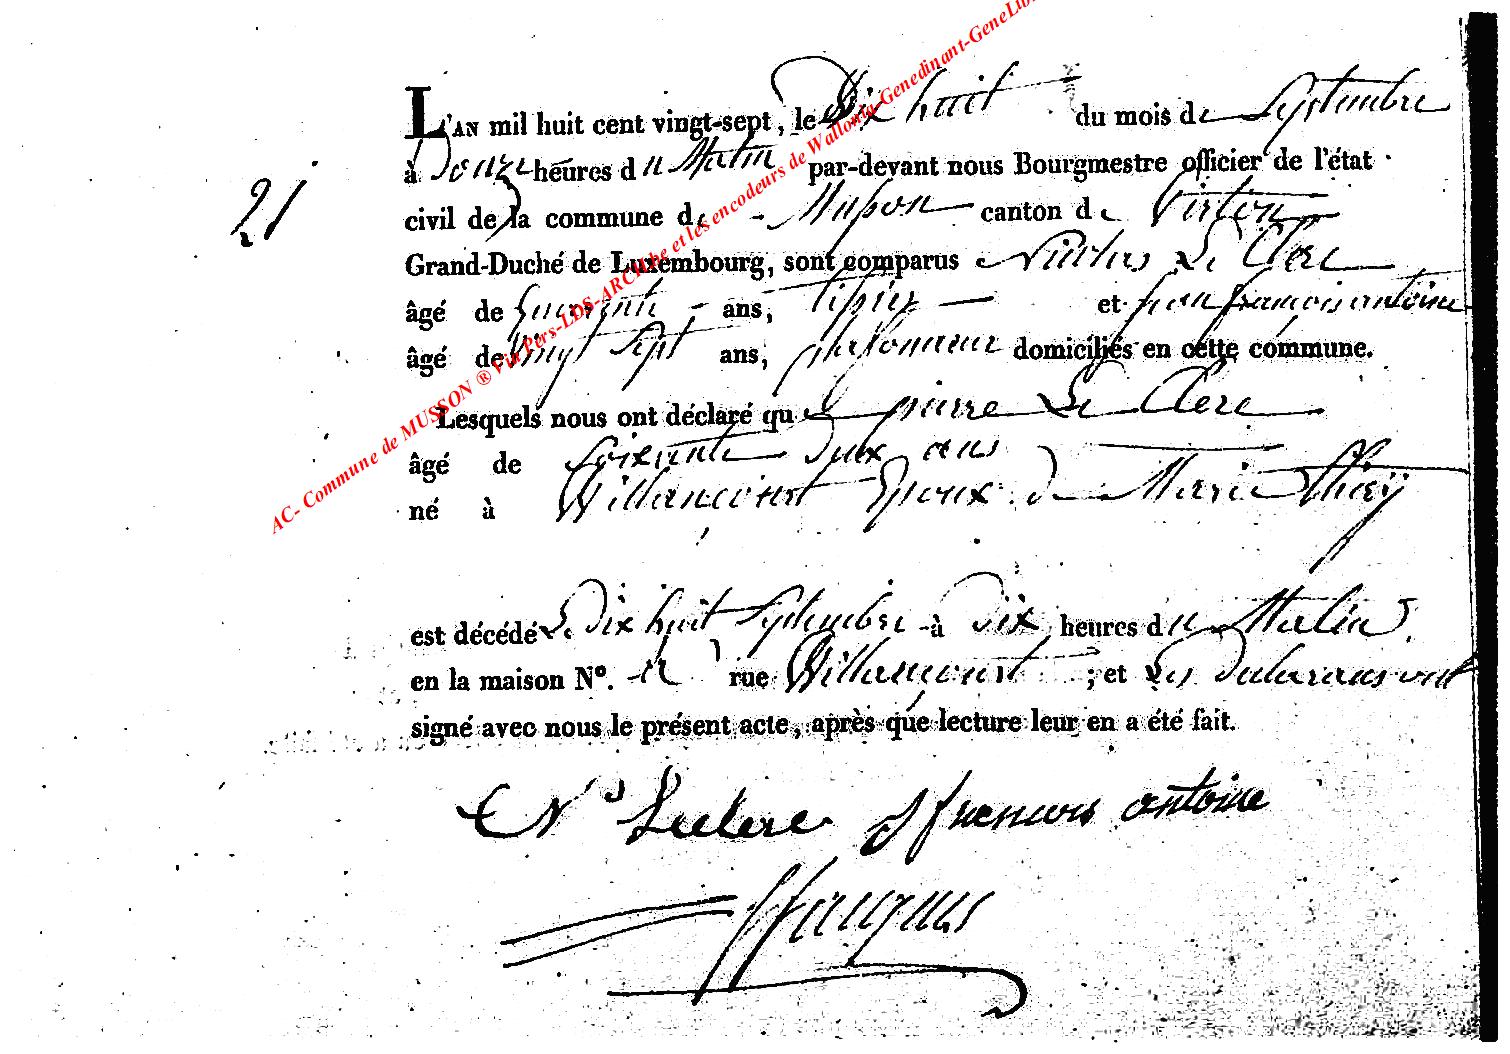 L'AN mil huit cent vingt-sept, le Dix huit du mois de Septembre
21
à Douze heures du Matin par-devant nous Bourgmestre officier de l'état
civil de la commune de Musson canton de Virton
Grand-Duché de Luxembourg, sont comparus Nicolas Le Clerc
âgé de quarante ans, tissier et jean françois antoine
âgé de vingt Sept ans, plafonneur domiciliés en cette commune.
Lesquels nous ont déclaré que pierre Le Clerc
âgé de Soixante deux ans
né à Willancourt Epoux de Marie Thiry
est décédé Le Dix huit Septembre à Dix heures du Matin
en la maison N°. rue Willancourt ; et Les Declarans ont
signé avec nous le présent acte, après que lecture leur en a été fait.
N Leclerc J francois antoine
AC- Commune de MUSSON ® Via Pers-LDS-ARCHche et les encodeurs de Wallonia-Genedinant-GeneLib